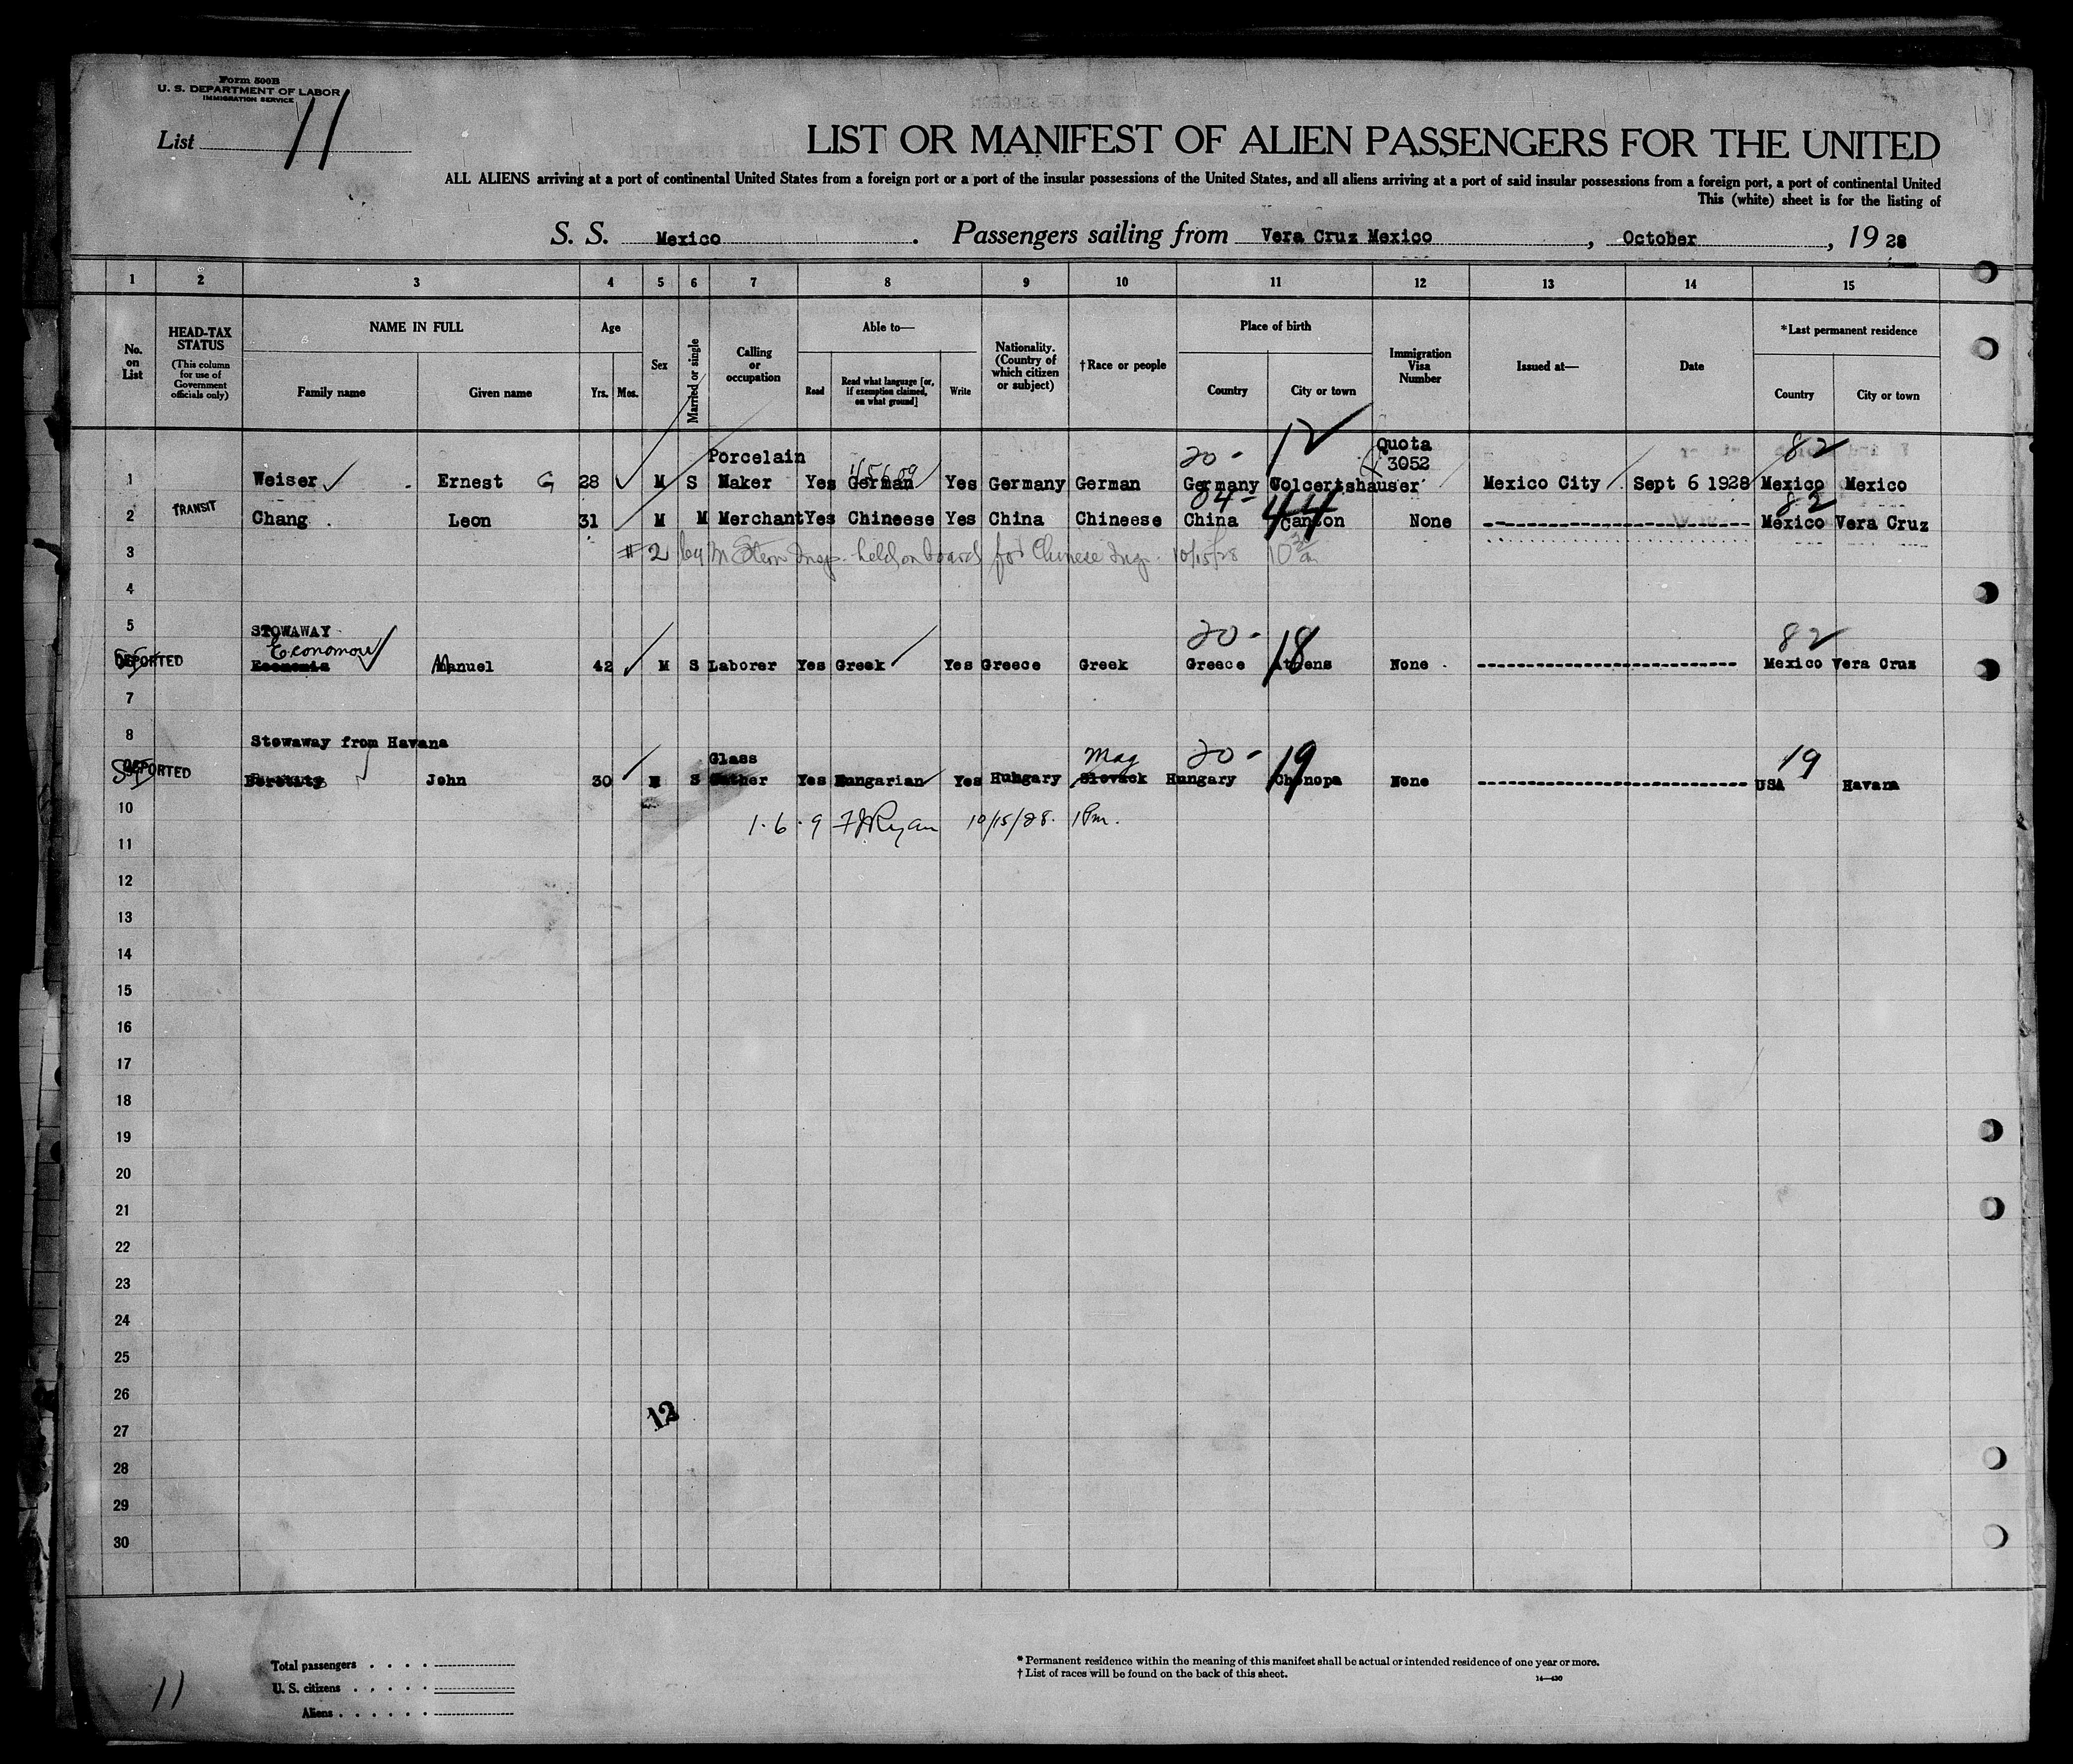 Form 500B
U. S. DEPARTMENT OF LABOR
IMMIGRATION SERVICE
List 11
LIST OR MANIFEST OF ALIEN PASSENGERS FOR THE UNITED
ALL ALIENS arriving at a port of continental United States from a foreign port or a port of the insular possessions of the United States, and all aliens arriving at a port of said insular possessions from a foreign port, a port of continental United
This (white) sheet is for the listing of
S. S. Mexico. Passengers sailing from Vera Cruz Mexico, October, 19 28
1 2 3 4 5 6 7 8 9 10 11 12 13 14 15
No. on List
HEAD-TAX STATUS
(This column for use of Government officials only)
NAME IN FULL
Family name Given name
Age
Yrs. Mos.
Sex
Married or single
Calling or occupation
Able to—
Read
Read what language [or, if exemption claimed, on what ground]
Write
Nationality. (Country of which citizen or subject)
†Race or people
Place of birth
Country City or town
Immigration Visa Number
Issued at—
Date
*Last permanent residence
Country City or town
Porcelain 20 - 12 Quota 3052 82
1 Weiser Ernest G 28 M S Maker Yes German Yes Germany German Germany Mexico City Sept 6 1928 Mexico Mexico
TRANSIT 04- 44 82
2 Chang Leon 31 M M Merchant Yes Chineese Yes China Chineese China Canton None Mexico Vera Cruz
3 #2 by M Stern Insp. held on board for Chinese Insp. 10/15/28 10 30 am
4
5 STOWAWAY 20 - 18 82
Economou
DEPORTED Economis Manuel 42 M S Laborer Yes Greek Yes Greece Greek Greece Athens None Mexico Vera Cruz
7
8 Stowaway from Havana
Glass Mag 20 - 19 19
DEPORTED John 30 M S Yes Hungarian Yes Hungary Slovack Hungary Chonopa None USA Havana
10 1.6.9 F J Ryan 10/15/28. 1 Pm.
11
12
13
14
15
16
17
18
19
20
21
22
23
24
25
26
12
27
28
29
30
Total passengers
U. S. citizens
Aliens
* Permanent residence within the meaning of this manifest shall be actual or intended residence of one year or more.
† List of races will be found on the back of this sheet.
14—430
11